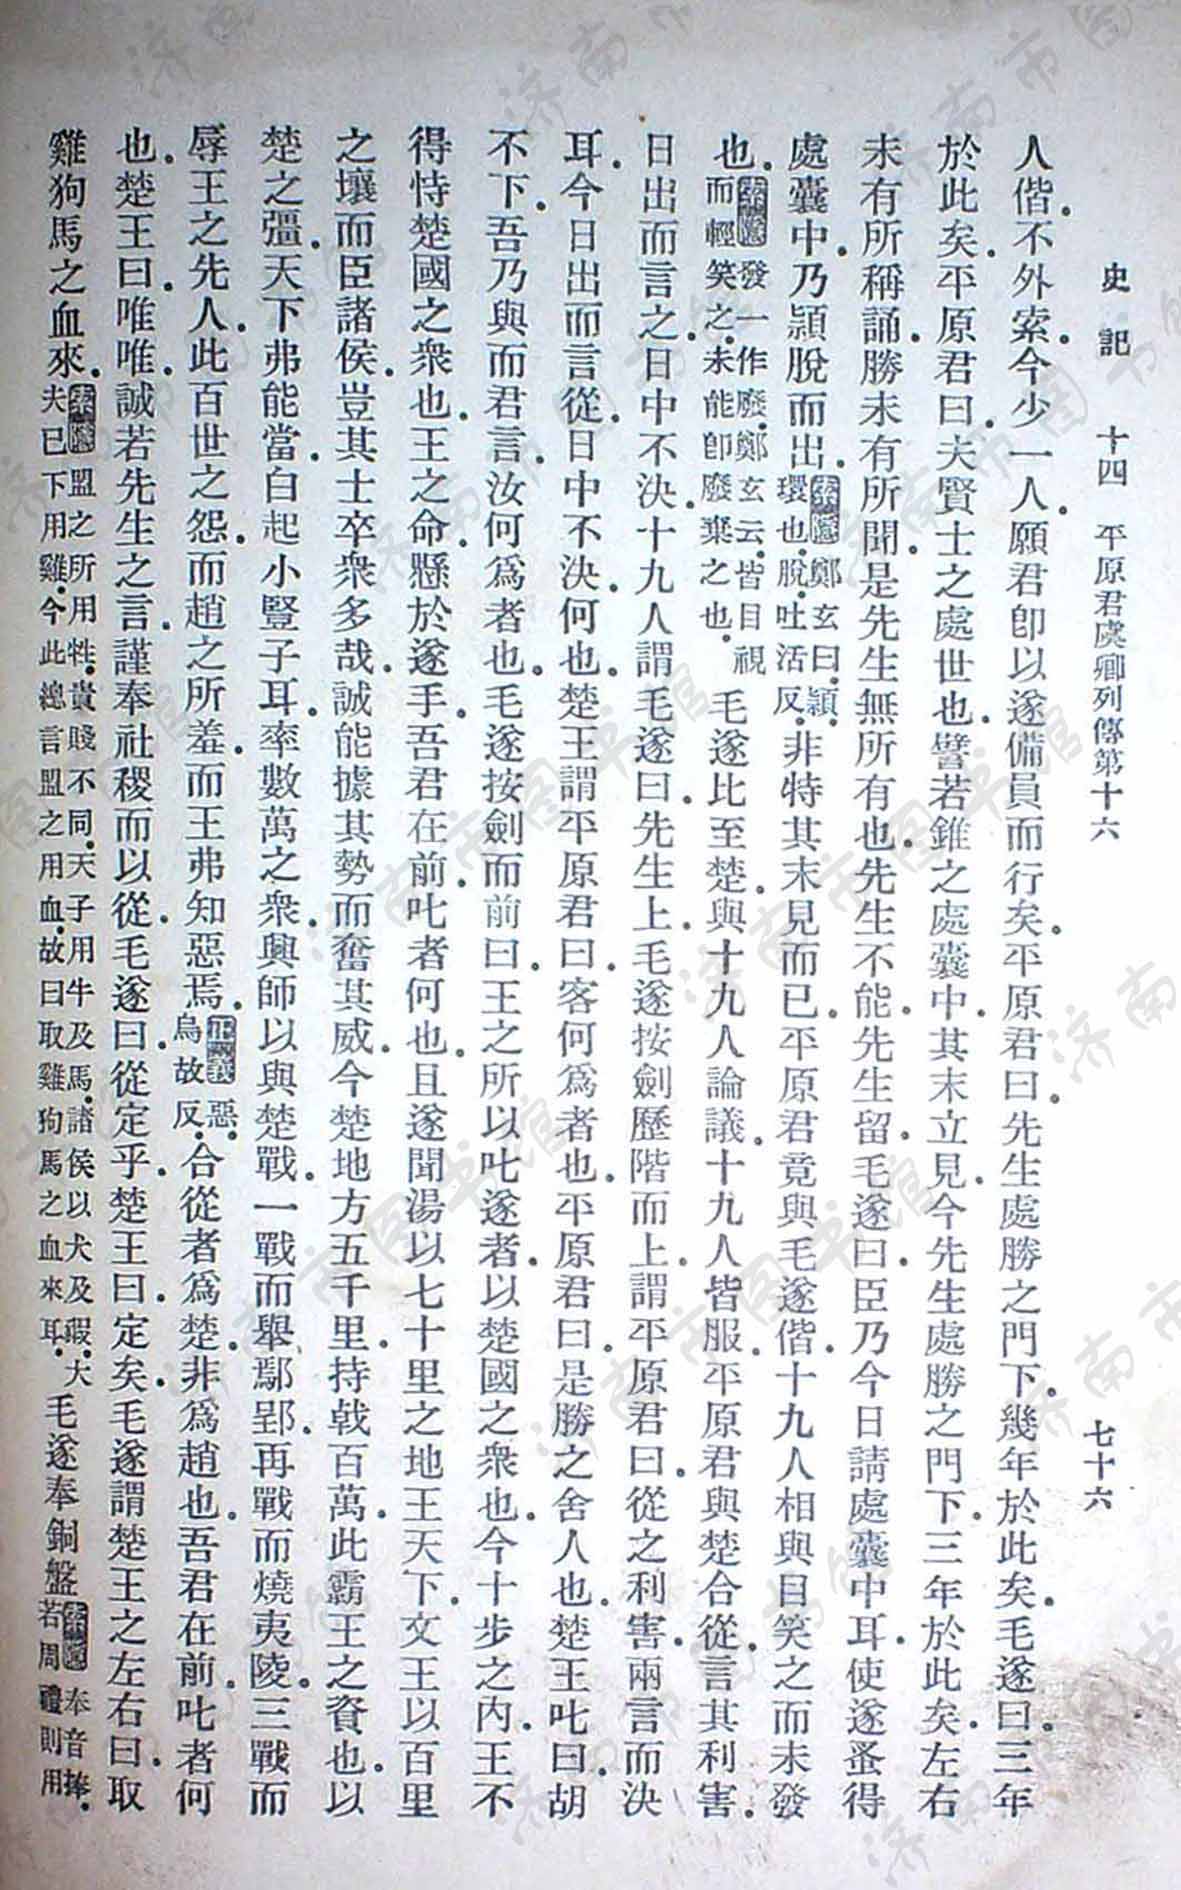 史記 十四 平原君虞卿列傳第十六 七十六
人偕。不外索。今少一人。願君卽以遂備員而行矣。平原君曰。先生處勝之門下。幾年於此矣。毛遂曰。三年
於此矣。平原君曰。夫賢士之處世也。譬若錐之處囊中。其末立見。今先生處勝之門下。三年於此矣。左右
未有所稱誦。勝未有所聞。是先生無所有也。先生不能。先生留。毛遂曰。臣乃今日請處囊中耳。使遂蚤得
處囊中。乃穎脫而出。索隱鄭玄曰。穎。環也。脫。吐活反。非特其末見而已。平原君竟與毛遂偕。十九人相與目笑之而未發
也。索隱發一作廢。鄭玄云。皆目視而輕笑之。未能卽廢棄之也。毛遂比至楚。與十九人論議。十九人皆服。平原君與楚合從。言其利害。
日出而言之。日中不決。十九人謂毛遂曰。先生上。毛遂按劍歷階而上。謂平原君曰。從之利害。兩言而決
耳。今日出而言從。日中不決。何也。楚王謂平原君曰。客何爲者也。平原君曰。是勝之舍人也。楚王叱曰。胡
不下。吾乃與而君言。汝何爲者也。毛遂按劍而前曰。王之所以叱遂者。以楚國之衆也。今十步之內。王不
得恃楚國之衆也。王之命。懸於遂手。吾君在前。叱者何也。且遂聞湯以七十里之地王天下。文王以百里
之壤而臣諸侯。豈其士卒衆多哉。誠能據其勢而奮其威。今楚地方五千里。持戟百萬。此霸王之資也。以
楚之彊。天下弗能當。白起小豎子耳。率數萬之衆。興師以與楚戰。一戰而舉鄢郢。再戰而燒夷陵。三戰而
辱王之先人。此百世之怨。而趙之所羞。而王弗知惡焉。正義惡。烏故反。合從者爲楚。非爲趙也。吾君在前。叱者何
也。楚王曰。唯唯。誠若先生之言。謹奉社稷而以從。毛遂曰。從定乎。楚王曰。定矣。毛遂謂楚王之左右曰。取
雞狗馬之血來。索隱盟之所用牲。貴賤不同。天子用牛及馬。諸侯以犬及豭。大夫已下用雞。今此總言盟之用血。故曰取雞狗馬之血來耳。毛遂奉銅盤索隱奉音捧。若周禮則用